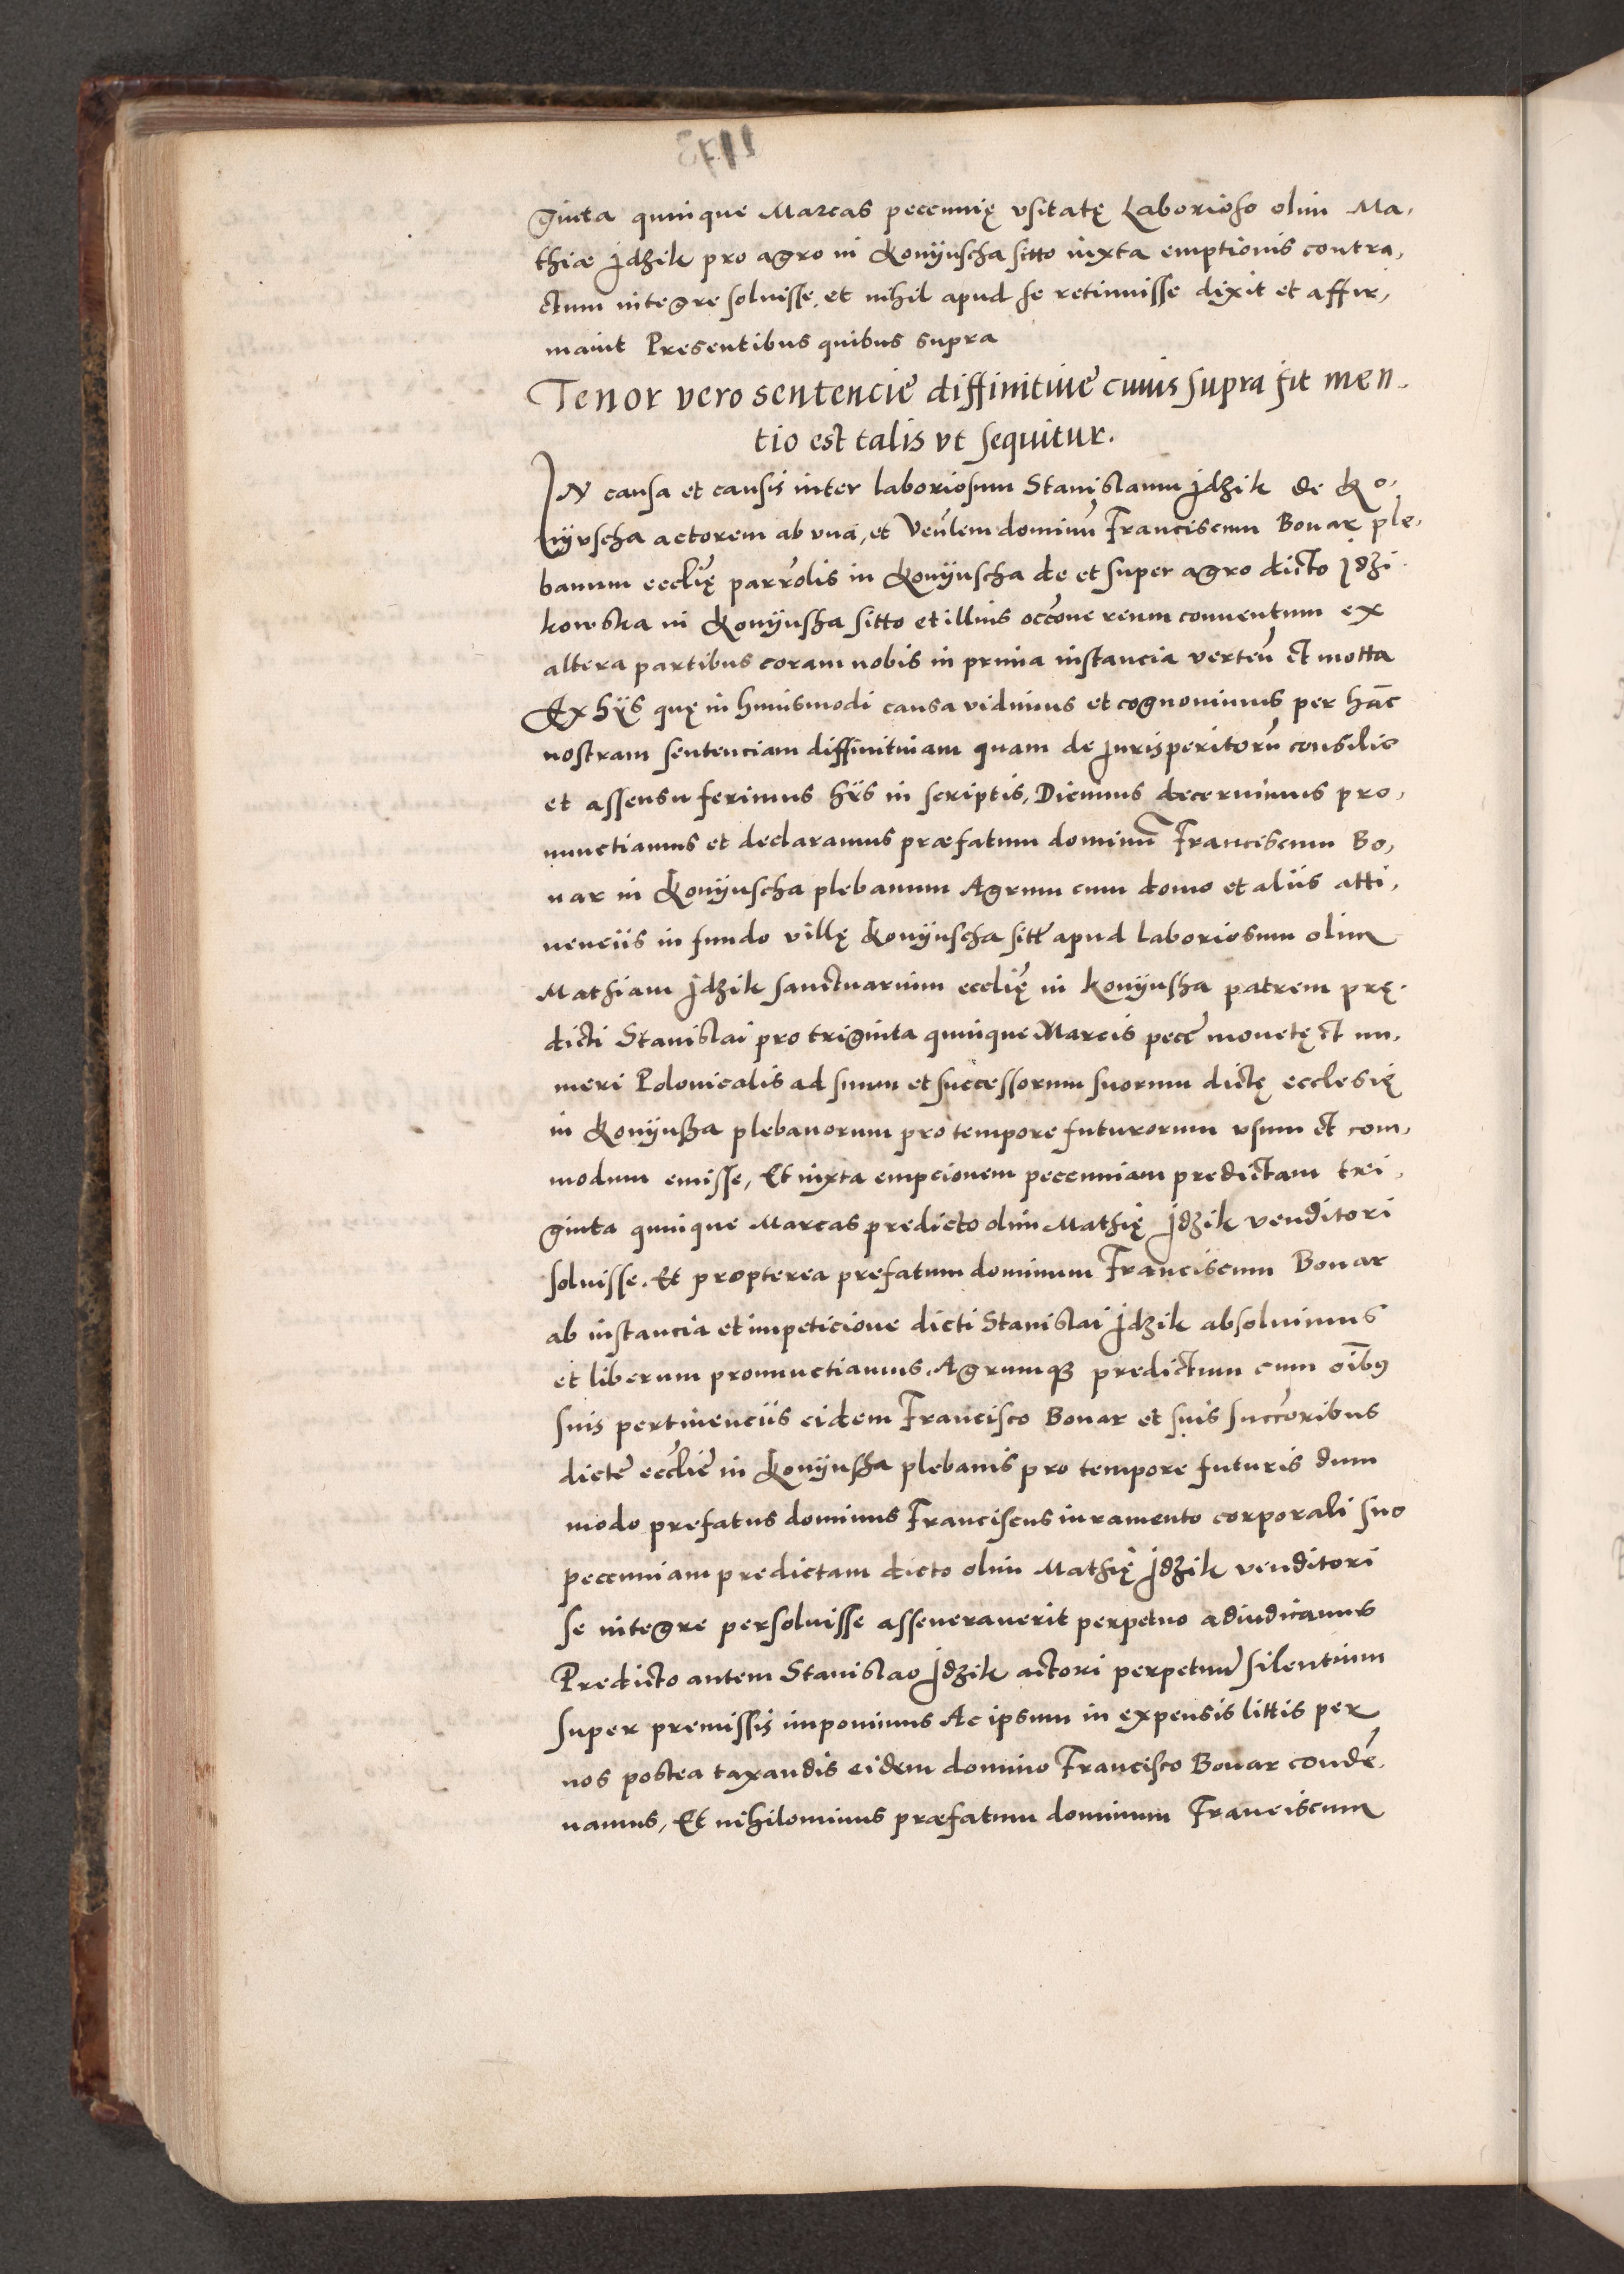 ginta quinque Marcas pecunnię vsitatę Laborioso olim Ma,
thiæ Jdzik pro agro in Konÿuscha sitto iuxta emptionis contra,
ctum integre soluisse, et nihil apud se retinuisse dixit et affir,
mauit Presentibus quibus supra
Tenor vero sentencie diffinitiue cuius supra fit men-
tio est talis vt sequitur.
IN causa et causis inter laboriosum Stanislaum Jdzik de Ko,
nÿuscha actorem ab vna, et Veñlem dominũ Franciscum Bonar ple,
banum ecclię parrolis in Konÿuscha de et super agro dicto Jdzi
kowska in Konÿusha sitto et illius occone reum conuentum ex
altera partibus coram nobis in prima instancia verteñ et motta
Ex hÿs quę in huiusmodi causa vidimus et cognouimus per hãc
nostram sentenciam diffinitiuam quam de Jurisperitorũ consilio
et assensu ferimus hÿs in scriptis, Dicimus decernimus pro,
nunctiamus et declaramus præfatum dominũ Franciscum Bo,
nar in Konÿuscha plebanum Agrum cum domo et aliis atti,
nenciis in fundo villę Konÿuscha sitt apud laboriosum olim
Mathiam Jdzik sanctuarium ecclię in Konÿusha patrem prę,
dicti Stanislai pro triginta quinque Marcis pecc monetę et nu,
meri Polonicalis ad suum et successorum suorum dictę ecclesię
in Konÿusha plebanorum pro tempore futurorum vsum et com,
modum emisse, Et iuxta empcionem pecunniam predictam tri,
ginta quinque Marcas predicto olim Mathię Jdzik venditori
soluisse. Et propterea prefatum dominum Franciscum Bonar
ab instancia et impeticione dicti Stanislai Jdzik absoluimus
et liberum pronunctiamus, Agrumqꝫ predictum cum oĩbꝰ
suis pertinenciis eidem Francisco Bonar et suis succoribus
dicte ecclie in Konÿusha plebanis pro tempore futuris dum
modo prefatus dominus Franciscus iuramento corporali suo
pecunniam predictam dicto olim Mathię Jdzik venditori
se integre persoluisse asseuerauerit perpetuo adiudicamus
Predicto autem Stanislao Jdzik actori perpetuũ silentium
super premissis imponimus Ac ipsum in expensis littis per
nos postea taxandis eidem domino Francisco Bonar condẽ,
namus, Et nihilominus præfatum dominum Franciscum